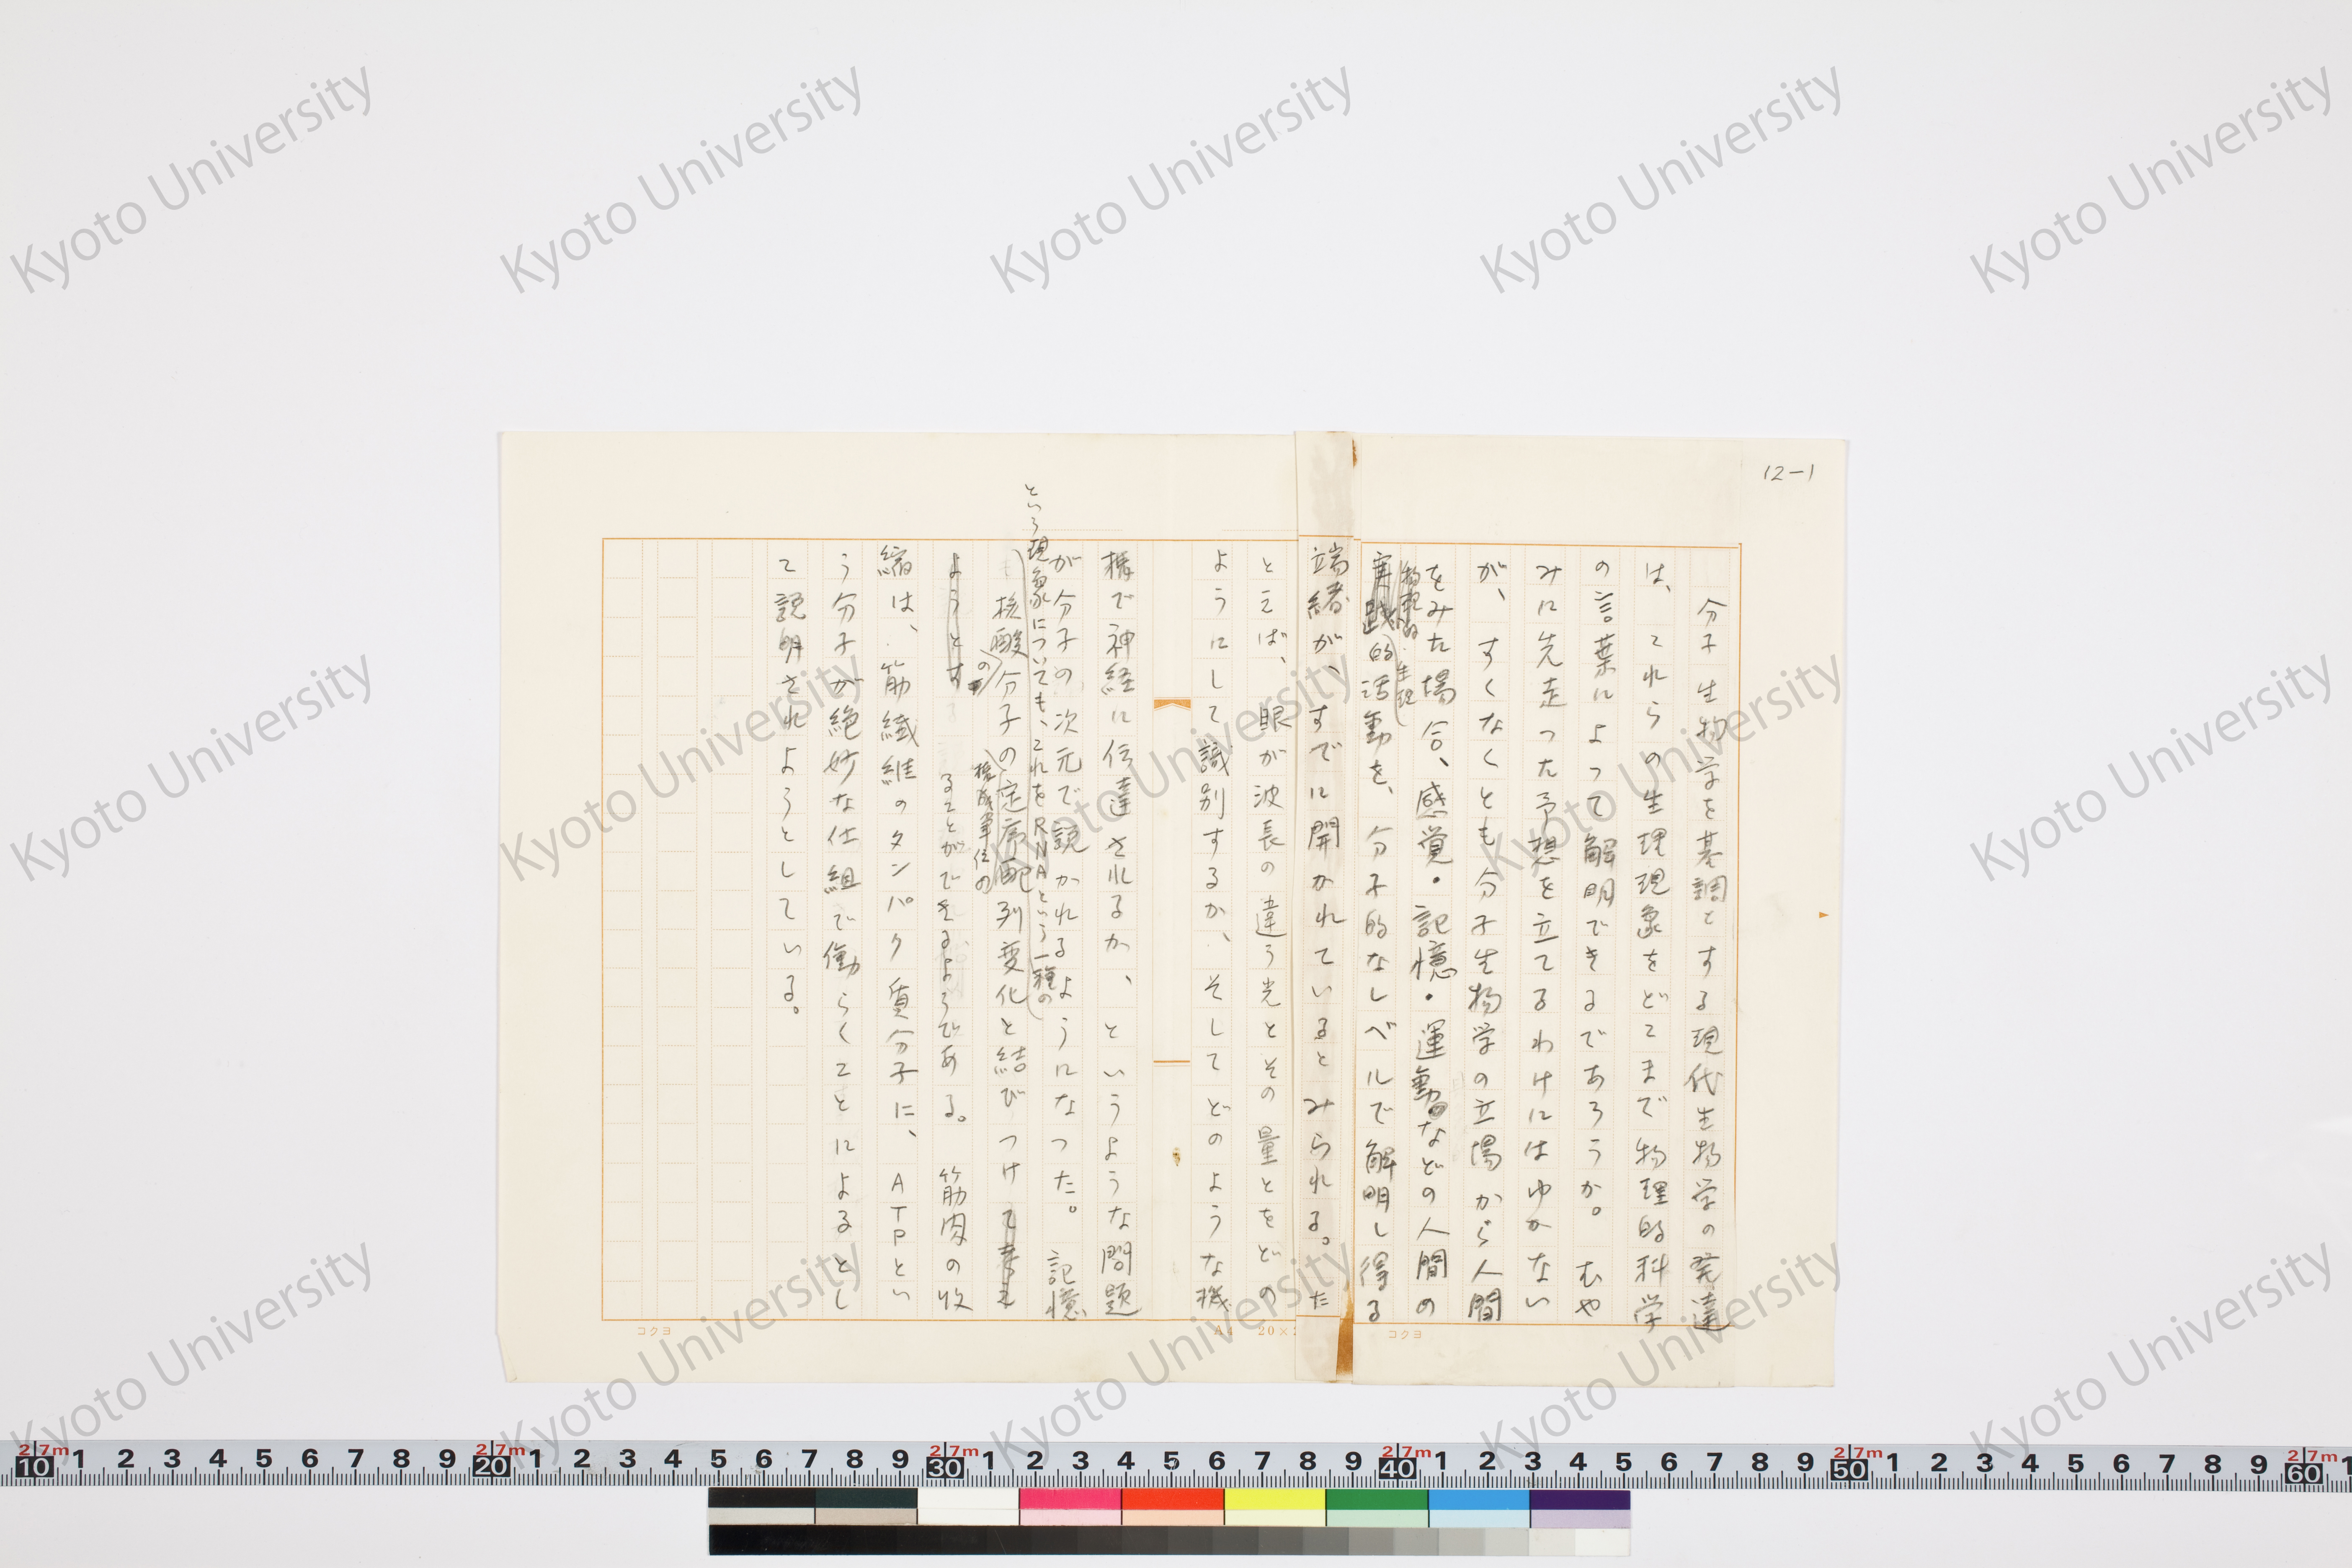 12-1
分子生物学を基調とする現代生物学の発達
は、これらの生理現象をどこまで物理的科学
の言葉によって解明できるであろうか。むや
みに先走った予想を立てるわけにはゆかない
が、すくなくとも分子生物学の立場から人間
をみた場合、感覚・記憶・運動などの人間の
生理
的活動を、分子的なレベルで解明し得る
端緒が、すでに開かれているとみられる。た
とえば、眼が波長の違う光とその量とをどの
ようにして識別するか、そしてどのような機
構で神経に伝達されるか、というような問題
が分子の次元で説かれるようになった。記憶
という現象についても、これをRNAという一種の
核酸分子の定序配列変化と結びつけ
の
構成単位の
ようとす
ることができるようである。筋肉の収
縮は、筋繊維のタンパク質分子に、ATPとい
う分子が絶妙な仕組で働らくことによるとし
て説明されようとしている。
コクヨ
A4 20×2
コクヨ
Kyoto University
2.7m 10 1 2 3 4 5 6 7 8 9 2.7m 20 1 2 3 4 5 6 7 8 9 2.7m 30 1 2 3 4 5 6 7 8 9 2.7m 40 1 2 3 4 5 6 7 8 9 2.7m 50 1 2 3 4 5 6 7 8 9 2.7m 60